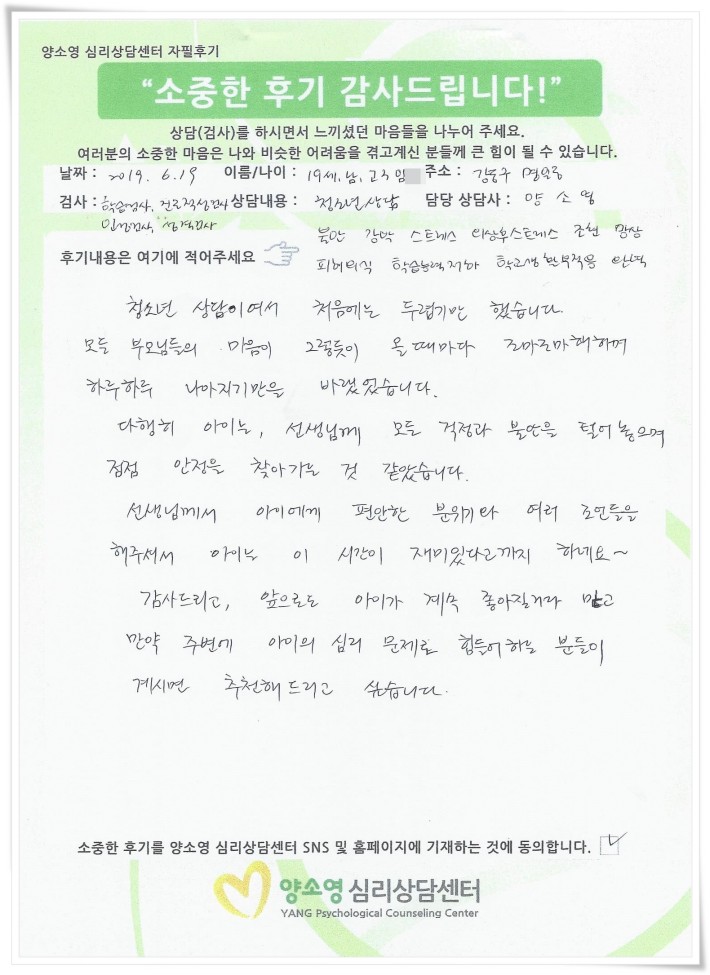 양소영 심리상담센터 자필후기
“소중한 후기 감사드립니다!”
상담(검사)를 하시면서 느끼셨던 마음들을 나누어 주세요.
여러분의 소중한 마음은 나와 비슷한 어려움을 겪고계신 분들께 큰 힘이 될 수 있습니다.
날짜 : 2019. 6. 19 이름/나이 : 19세, 남, 고3 임 주소 : 강동구 명일동
검사 : 학습검사, 진로적성검사 상담내용 : 청소년상담 담당 상담사 : 양 소 영
인성검사, 성격검사
불안 강박 스트레스 외상후스트레스 조현 망상
후기내용은 여기에 적어주세요
피해의식 학습능력저하 학교생활부적응
청소년 상담이여서 처음에는 두렵기만 했습니다.
모든 부모님들의 마음이 그렇듯이 올때마다 조마조마해하며
하루하루 나아지기만을 바랬었습니다.
다행히 아이는, 선생님께 모든 걱정과 불안을 털어놓으며
점점 안정을 찾아가는 것 같았습니다.
선생님께서 아이에게 편안한 분위기와 여러 조언들을
해주셔서 아이는 이 시간이 재미있다고까지 하네요~
감사드리고, 앞으로도 아이가 계속 좋아질거라 믿고
만약 주변에 아이의 심리 문제로 힘들어하는 분들이
계시면 추천해드리고 싶습니다.
소중한 후기를 양소영 심리상담센터 SNS 및 홈페이지에 기재하는 것에 동의합니다.
양소영 심리상담센터
YANG Psychological Counseling Center